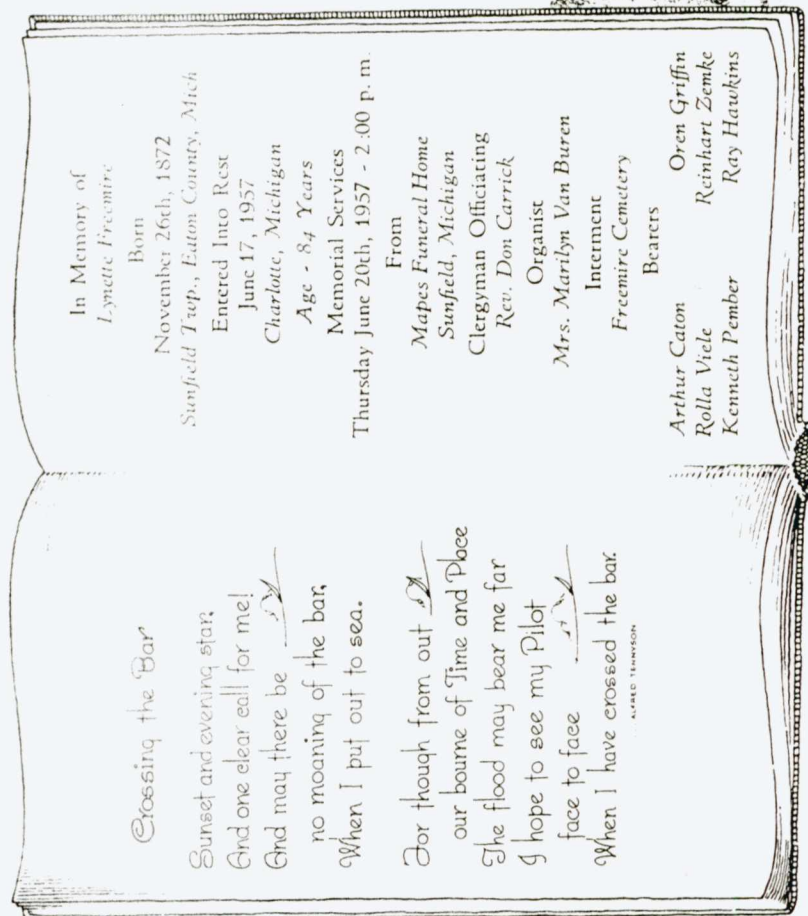 Crossing the Bar
Sunset and evening star,
And one clear call for me!
And may there be
no moaning of the bar,
When I put out to sea.
For though from out
our bourne of Time and Place
The flood may bear me far
I hope to see my Pilot
face to face
When I have crossed the bar.
ALFRED TENNYSON
In Memory of
Lynette Freemire
Born
November 26th, 1872
Sunfield Twp., Eaton County, Mich
Entered Into Rest
June 17, 1957
Charlotte, Michigan
Age - 84 Years
Memorial Services
Thursday June 20th, 1957 - 2:00 p. m.
From
Mapes Funeral Home
Sunfield, Michigan
Clergyman Officiating
Rev. Don Carrick
Organist
Mrs. Marilyn Van Buren
Interment
Freemire Cemetery
Bearers
Arthur Caton Oren Griffin
Rolla Viele Reinhart Zemke
Kenneth Pember Ray Hawkins